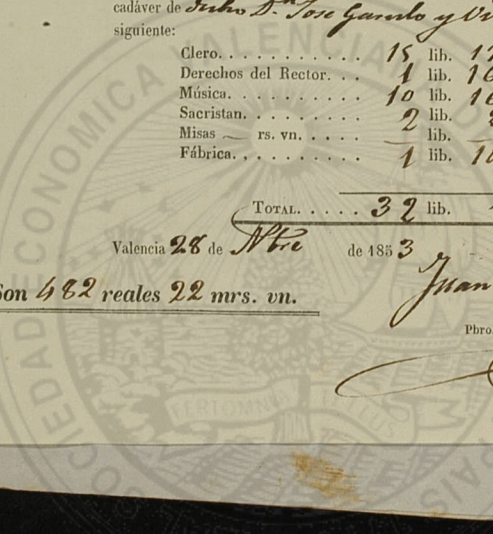 cadáver de dicho Dn. Jose Garulo y
siguiente:
Clero. . . . . . . . . . . 15 lib. 1
Derechos del Rector. . . 1 lib. 16
Música. . . . . . . . . . 10 lib. 16
Sacristan. . . . . . . . . 2 lib.
Misas — rs. vn. . . . . — lib.
Fábrica. . . . . . . . . . 1 lib. 10
TOTAL. . . . . 32 lib.
Valencia 28 de Nbre de 1853
Juan
Pbro.
on 482 reales 22 mrs. vn.
SOCIEDAD ECONOMICA VALENCIANA
PAIS
FERTOMNIA TELLUS